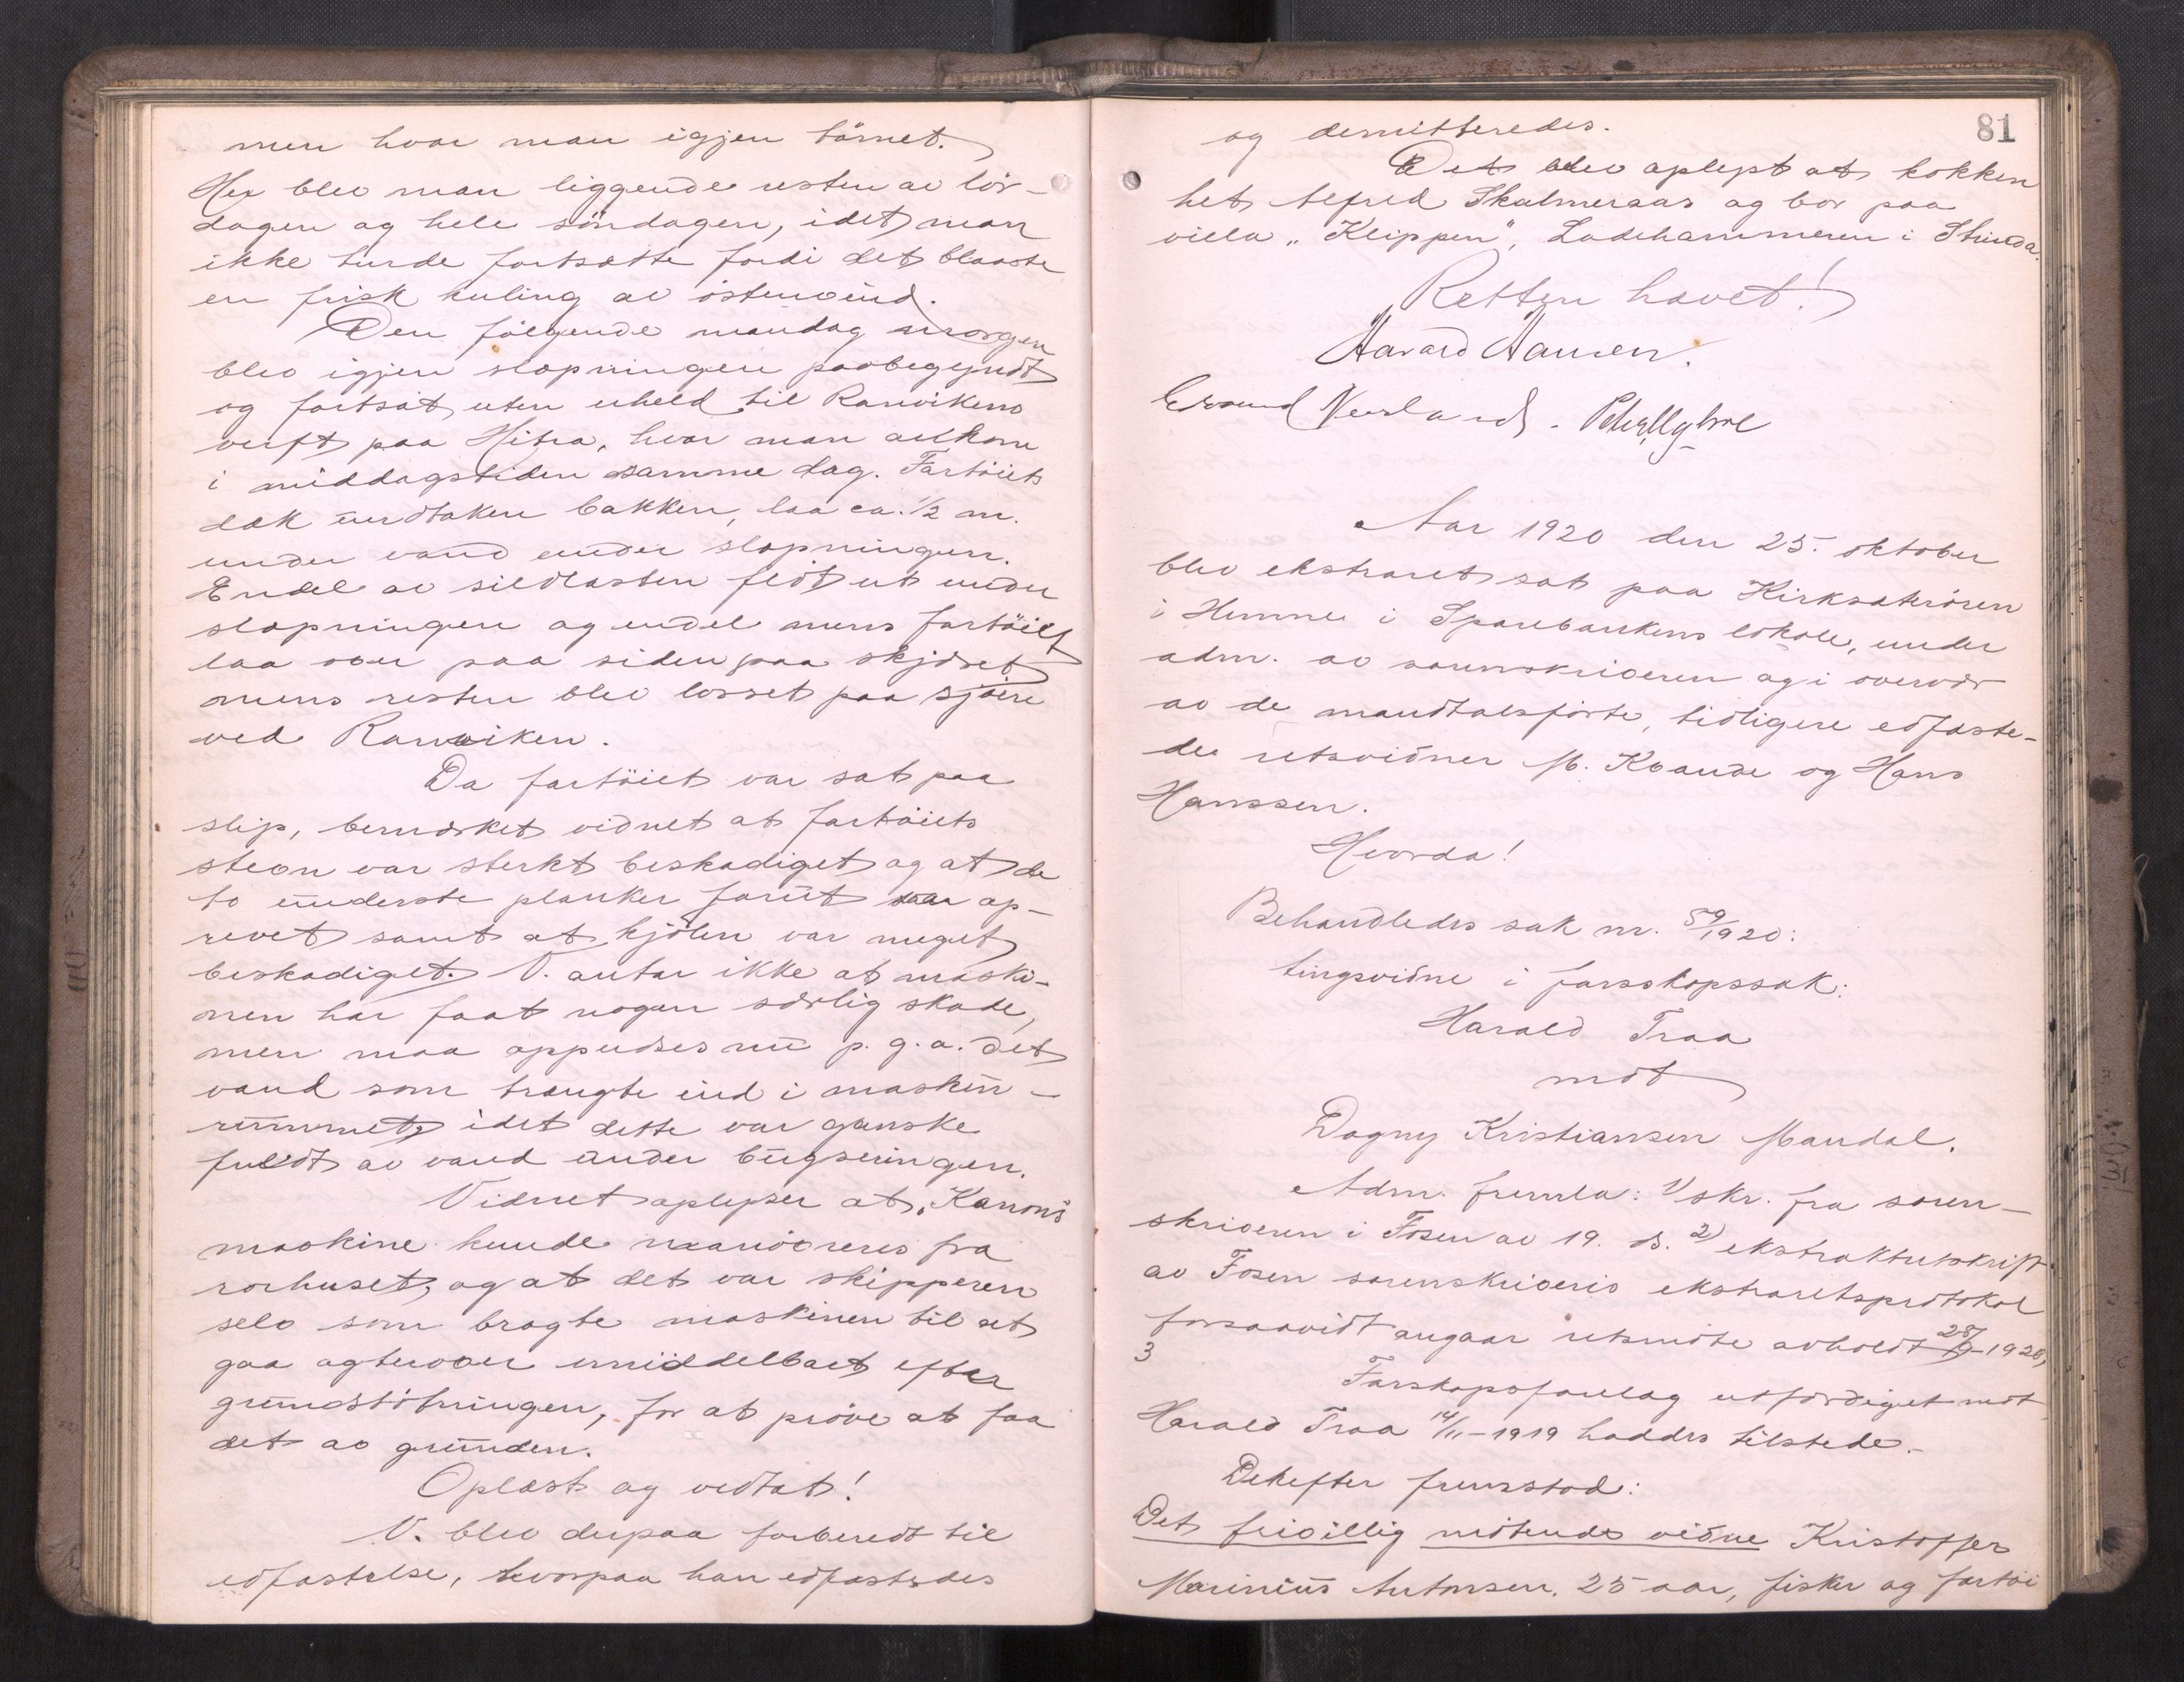 men hvor man igjen törnet.
Her blev man liggende resten av lör-
dagen og hele söndagen, idet man
ikke turde fortsætte fordi det blaaste
en frisk kuling av östenvind.
Den fölgende mandag morgen
blev igjen slæpningen paabegyndt
og fortsat uten uheld til Ranvikens
verft paa Hitra, hvor man ankom
i middagstiden samme dag. Fartöiets
dæk undtaken bakken, laa ca. 1/2 m.
under vand under slæpningen.
Endel av sildlasten flöt ut under
slæpningen og endel mens fartöiet
laa over paa siden paa skjæret
mens resten blev losset paa sjöen
ved Ranviken.
Da fartöiet var sat paa
slip, bemærket vidnet at fartöiets
stevn var sterkt beskadiget og at de
to underste planker forut var op-
revet samt at kjölen var meget
beskadiget. V. antar ikke at maski-
nen har faat nogen særlig skade,
men maa oppudses nu p. g. a. det
vand som trængte ind i maskin-
rummet, idet dette var ganske
fuldt av vand under bugseringen.
Vidnet oplyser at „Kanons"
maskine kunde manövreres fra
rorhuset, og at det var skipperen
selv som bragte maskinen til at
gaa agterover umiddelbart efter
grundstötningen, for at pröve at faa
det av grunden.
Oplæst og vedtat!
V. blev derpaa forberedt til
edfæstelse, hvorpaa han edfæstedes
81
og demitteredes.
Det blev oplyst at kokken
het Alfred Skalmeraas og bor paa
villa „Klippen", Ladehammeren i Strinda.
Retten hævet!
Havard Hansen.
Neerland.
Aar 1920 den 25. oktober
blev ekstraret sat paa Kirksæterören
i Hemne i Sparebankens lokale, under
adm. av sorenskriveren og i overvær
av de mandtalsförte, tidligere edfæste-
de retsvidner M. Kvande og Hans
Hanssen.
Hvorda!
Behandledes sak nr. 59/1920:
tingsvidne i farsskapssak:
Harald Traa
mot
Dagny Kristiansen Mandal.
Adm. fremla: 1) skr. fra soren-
skriveren i Fosen av 19. ds. 2) ekstraktutskrift
av Fosen sorenskriveris ekstraretsprotokol
forsaavidt angaar retsmöte avholdt 28/9-1920,
3
Farskapsforelæg utfærdiget mot
Harald Traa 14/11-1919 haddes tilstede.-
Derefter fremstod:
Det frivillig mötende vidne Kristoffer
Marinius Antonsen, 25 aar, fisker og fartöi